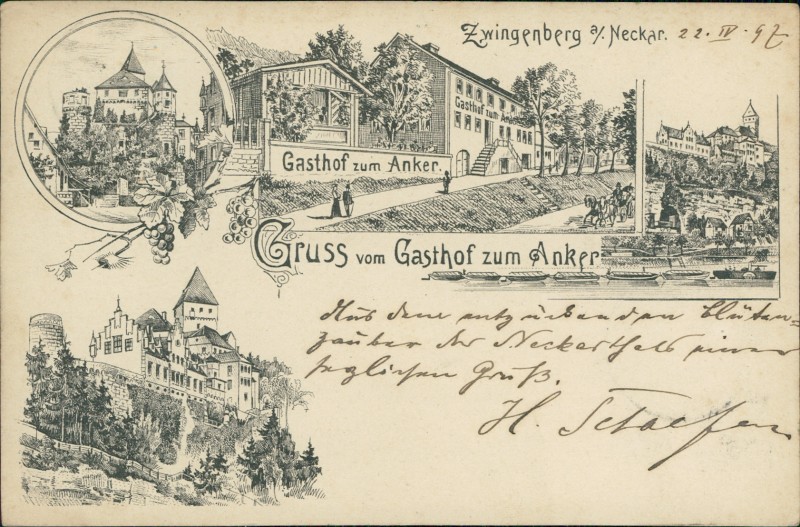 Zwingenberg a/. Neckar. 22. IV. 97
Gasthof zum Anker
Gasthof zum Anker.
Gruss vom Gasthof zum Anker
Aus dem entzückenden Blüten=
zauber des Neckarthals einen
herzlichen Gruß.
H. Schaefer